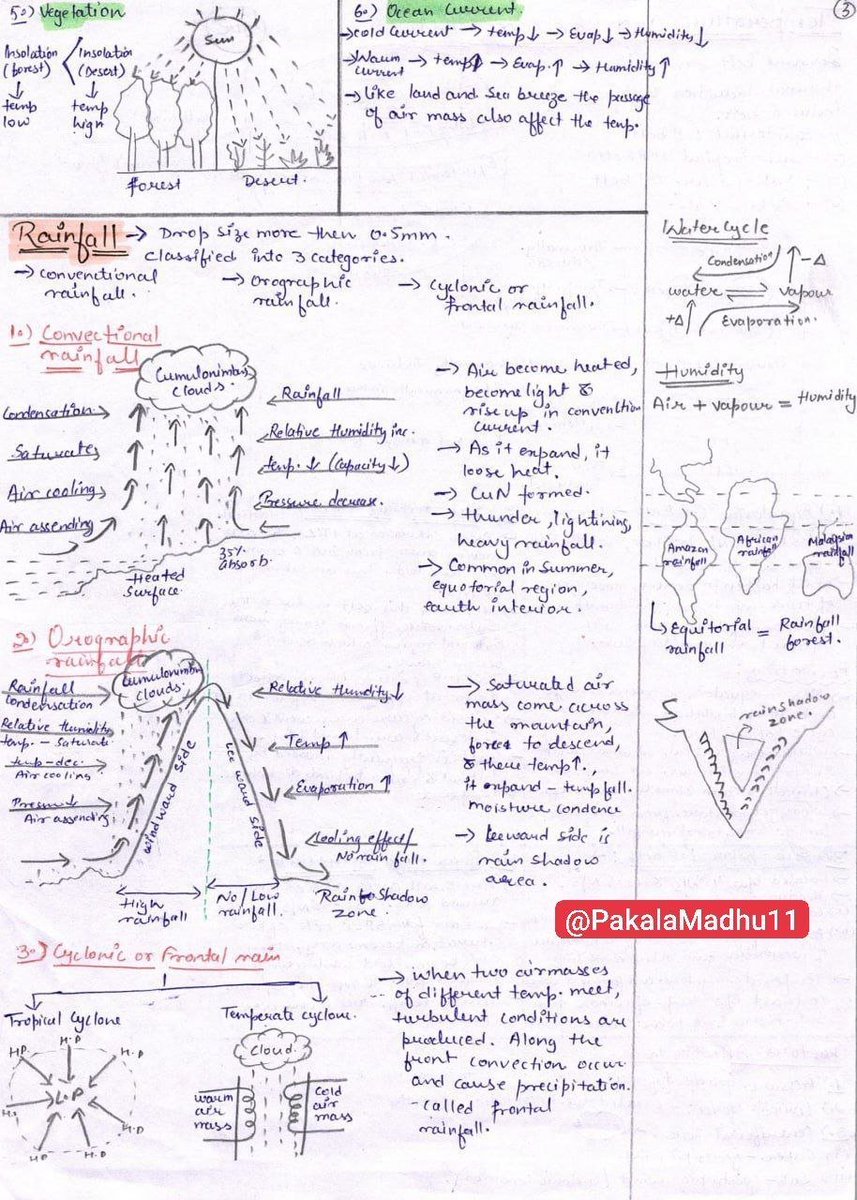 3
5.) Vegetation
Insolation (forest) < Insolation (Desert)
temp low
temp high
Sun
forest
Desert.
6.) Ocean Current.
→ cold current → temp↓ → Evap↓ → Humidity↓
→ Warm current → temp↑ → Evap.↑ → Humidity↑
→ like land and sea breeze the passage
of air mass also affect the temp.
Rainfall → Drop size more then 0.5mm.
classified into 3 categories.
→ conventional rainfall.
→ Orographic rainfall.
→ cyclonic or frontal rainfall.
1.) Convectional
rainfall
Cumulonimbus clouds.
Condensation
Saturates
Air cooling
Air assending
Rainfall
Relative Humidity inc.
temp.↓ (capacity↓)
Pressure decrease.
Heated Surface
35% absorb.
→ Air become heated,
become light &
rise up in convention
current.
→ As it expand, it
loose heat.
→ CuN formed.
→ thunder, lightining,
heavy rainfall.
→ Common in summer,
equotorial region,
earth interior.
2.) Orographic
rainfall
Cumulonimbus clouds.
Rainfall
condensation
Relative Humidity
temp. - Saturate
temp-dec.
Air cooling
Pressure↓
Air assending
windward side
Lee ward side
Relative Humdity↓
Temp↑
Evaporation↑
No rain fall.
High rainfall
No/Low rainfall.
Rain Shadow zone.
→ Saturated air
mass come across
the mountain,
force to descend,
& there temp↑.,
it expand - temp fall.
moisture condence
→ Leeward side is
rain shadow
area.
3.) Cyclonic or Frontal rain
Tropical Cyclone
Temperate cyclone.
H.P
H.P
H.P
H.P
L.P
H.P
H.P
H.P
Cloud.
warm air mass
cold air mass
→ when two airmasses
of different temp. meet,
turbulent conditions are
produced. Along the
front convection occur
and cause precipitation.
- called frontal
rainfall.
Water Cycle
Condensation
-Δ
water ⇌ vapour
+Δ
Evaporation.
Humidity
Air + vapour = Humidity
Amazon rainfall
African rainfall
Malaysian rainfall
Equitorial rainfall = Rainfall forest.
rainshadow zone.
@PakalaMadhu11